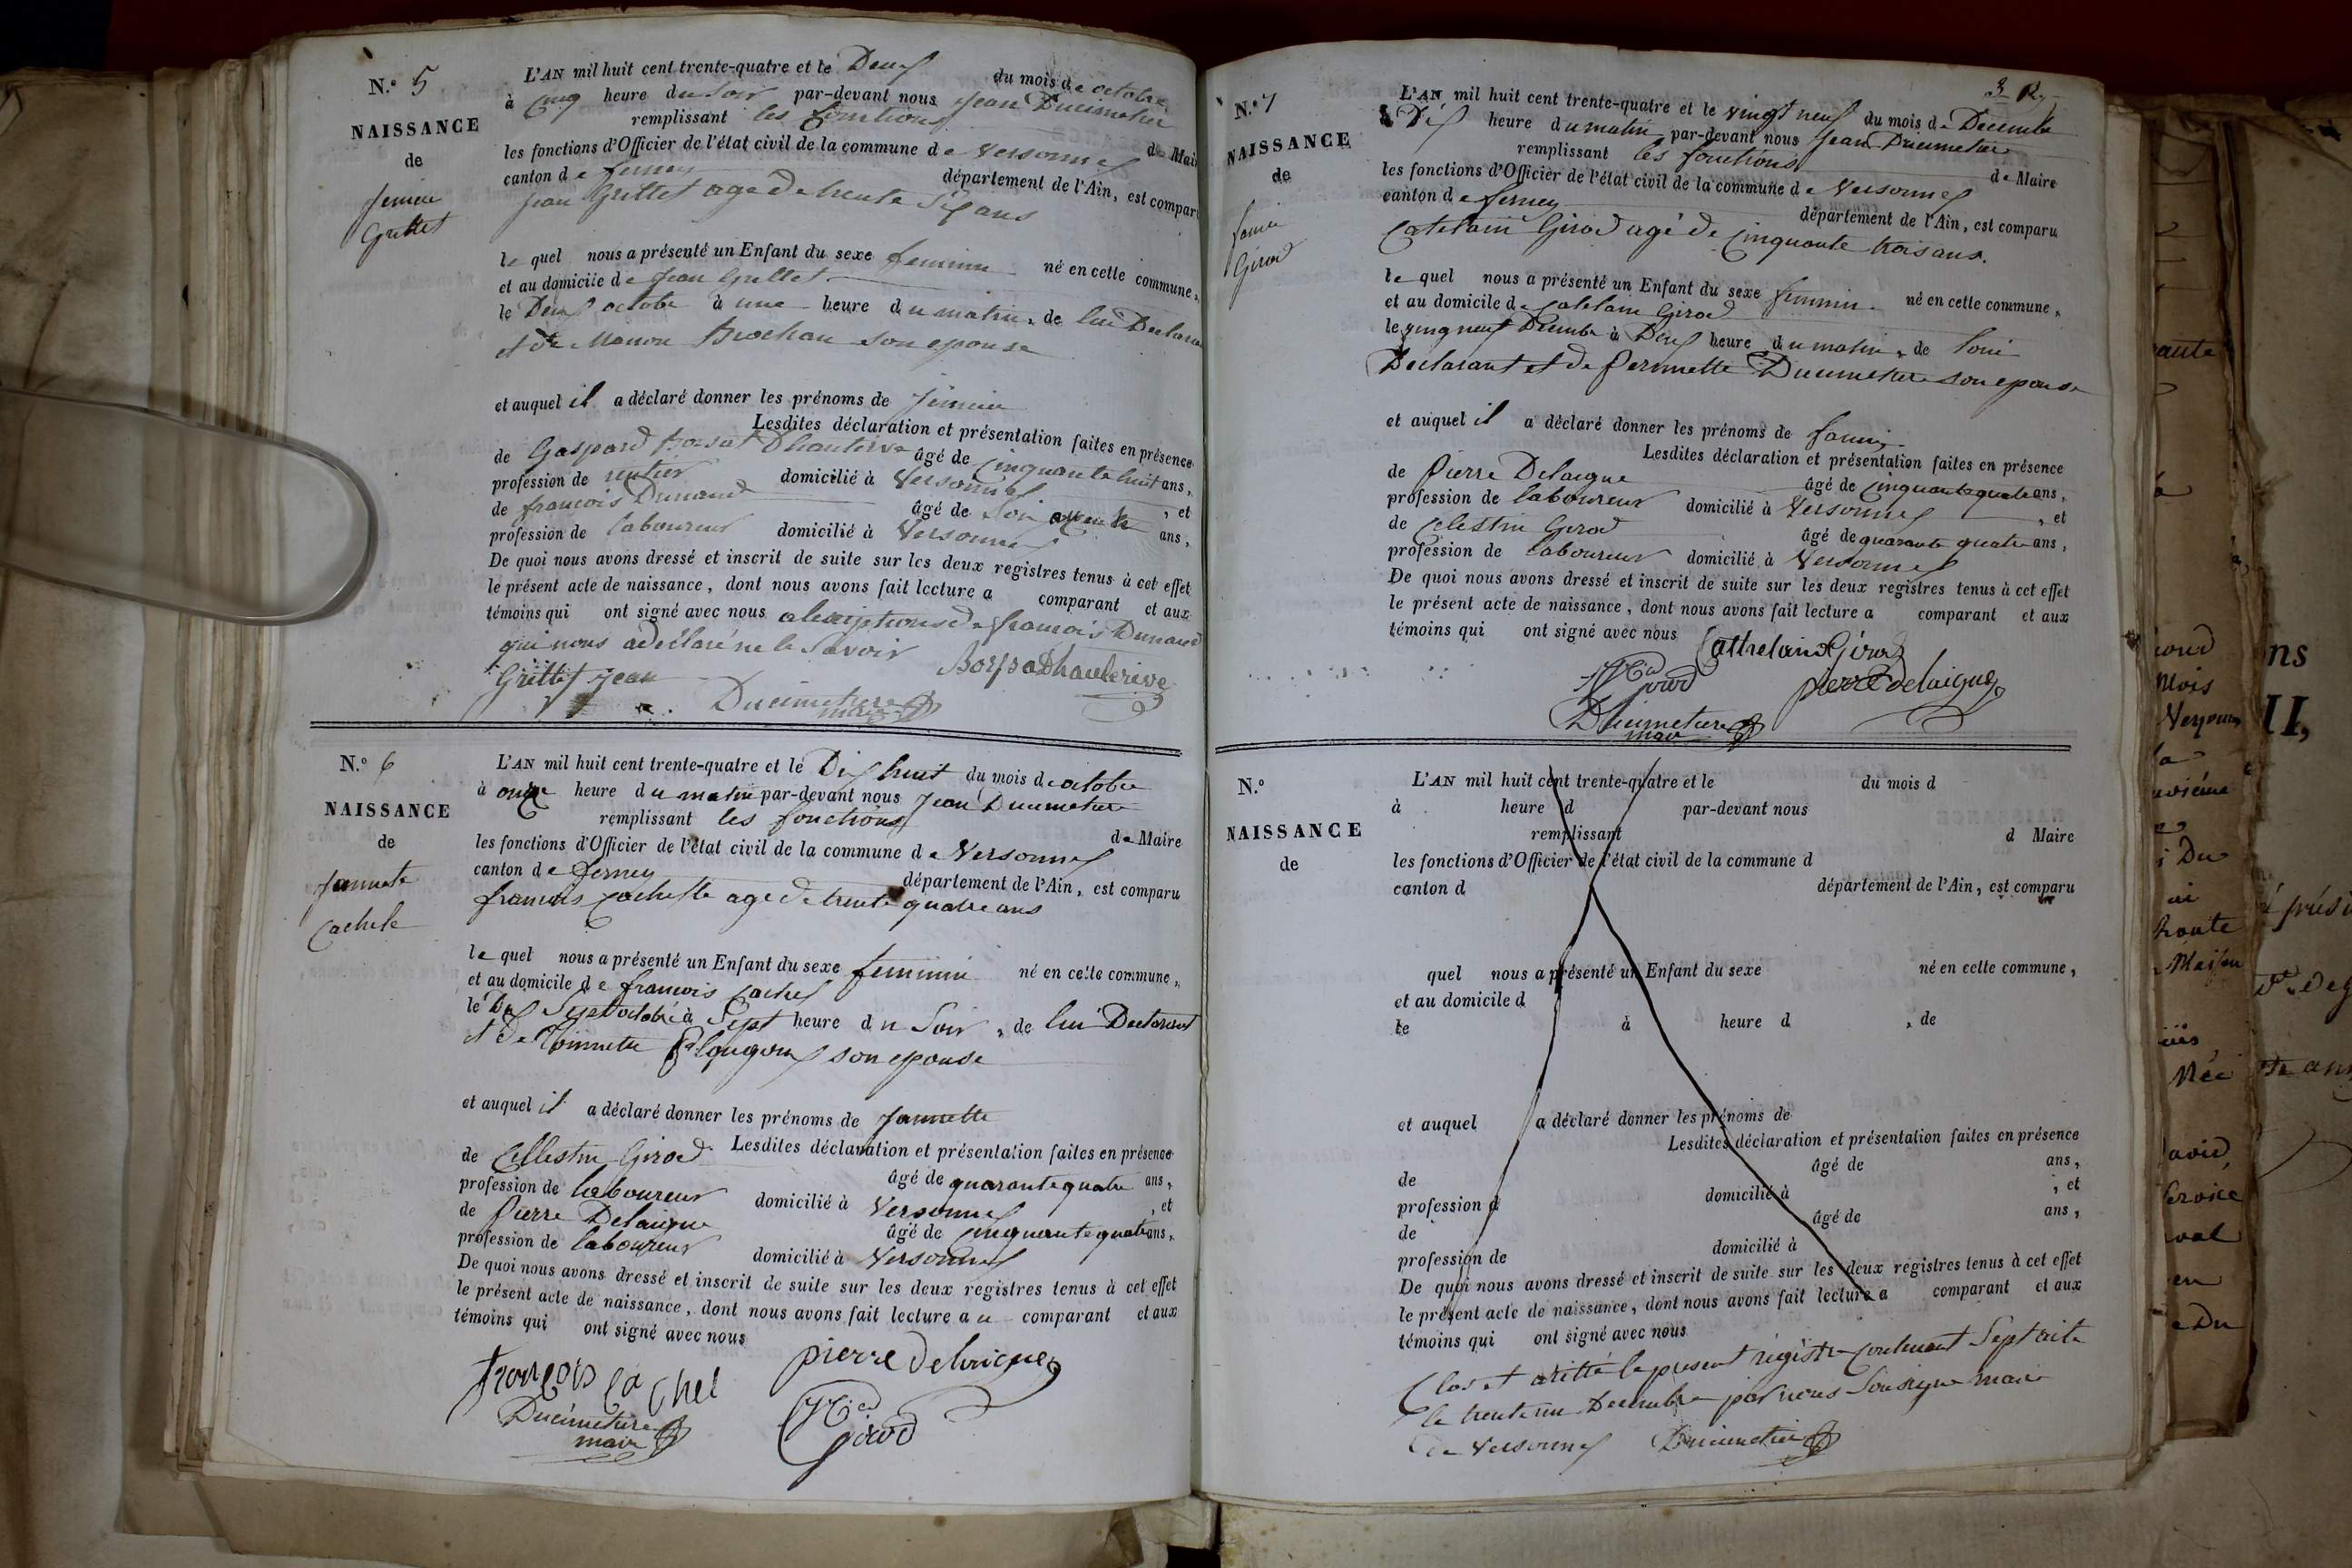 N.º 5
NAISSANCE
de
Grillet
L'AN mil huit cent trente-quatre et le Deux du mois de octobre
à cinq heure du soir par-devant nous Jean Ducimetier
remplissant les fonctions de Mai
les fonctions d'Officier de l'état civil de la commune de Versonnex
canton de ferney département de l'Ain, est compar
Jean Grillet age de trente Six ans
le quel nous a présenté un Enfant du sexe feminin né en cette commune,
et au domicile de Jean Grillet
le Deux octobre à une heure du matin, de lui Declara
et de Manon Brochau son epouse
et auquel il a déclaré donner les prénoms de
Lesdites déclaration et présentation faites en présence
de Gaspard Dhauterive âgé de cinquante huit ans,
profession de rentier domicilié à Versonnex, et
de francois Dunand âgé de ans,
profession de laboureur domicilié à Versonnex
De quoi nous avons dressé et inscrit de suite sur les deux registres tenus à cet effet
le présent acte de naissance, dont nous avons fait lecture a comparant et aux
témoins qui ont signé avec nous francois Dunand
qui nous a déclaré ne le Savoir
Grillet jean
Ducimetiere
maire
N.º 6
NAISSANCE
de
Jannete
Cachele
L'AN mil huit cent trente-quatre et le Dix huit du mois de octobre
à onze heure du matin par-devant nous Jean Ducimetiere
remplissant les fonctions de Maire
les fonctions d'Officier de l'état civil de la commune de Versonnex
canton de ferney département de l'Ain, est comparu
francois age de trente quatre ans
le quel nous a présenté un Enfant du sexe feminin né en cette commune,
et au domicile de francois Cachel
le Dix Sept octobre à Sept heure du Soir, de lui Declarant
et de son epouse
et auquel il a déclaré donner les prénoms de Jannette
Lesdites déclaration et présentation faites en présence
de Cellestin Girod âgé de quarante quatre ans,
profession de laboureur domicilié à Versonnex, et
de Pierre Delaigue âgé de cinquante quatre ans,
profession de laboureur domicilié à Versonnex
De quoi nous avons dressé et inscrit de suite sur les deux registres tenus à cet effet
le présent acte de naissance, dont nous avons fait lecture au comparant et aux
témoins qui ont signé avec nous
françois cachel
pierre delaigue
Ducimetiere
maire
girod
3
N.º 7
NAISSANCE
de
Girod
L'AN mil huit cent trente-quatre et le vingt neuf du mois de Decembre
à Dix heure du matin par-devant nous Jean Ducimetiere
remplissant les fonctions de Maire
les fonctions d'Officier de l'état civil de la commune de Versonnex
canton de ferney département de l'Ain, est comparu
Catelain Girod agé de cinquante trois ans.
le quel nous a présenté un Enfant du sexe feminin né en cette commune,
et au domicile de Catelain Girod
le Decembre à Deux heure du matin, de
Declarant et de Pernnette Ducimetiere son epouse
et auquel il a déclaré donner les prénoms de
Lesdites déclaration et présentation faites en présence
de Pierre Delaigue âgé de cinquante quatre ans,
profession de laboureur domicilié à Versonnex, et
de Celestin Girod âgé de quarante quatre ans,
profession de laboureur domicilié à Versonnex
De quoi nous avons dressé et inscrit de suite sur les deux registres tenus à cet effet
le présent acte de naissance, dont nous avons fait lecture a comparant et aux
témoins qui ont signé avec nous
Cathelain Girod
girod
pierre delaigue
Ducimetiere
maire
N.º
NAISSANCE
de
L'AN mil huit cent trente-quatre et le du mois d
à heure d par-devant nous
remplissant d Maire
les fonctions d'Officier de l'état civil de la commune d
canton d département de l'Ain, est comparu
quel nous a présenté un Enfant du sexe né en cette commune,
et au domicile d
le à heure d , de
et auquel a déclaré donner les prénoms de
Lesdites déclaration et présentation faites en présence
de âgé de ans,
profession d domicilié à , et
de âgé de ans,
profession de domicilié à
De quoi nous avons dressé et inscrit de suite sur les deux registres tenus à cet effet
le présent acte de naissance, dont nous avons fait lecture a comparant et aux
témoins qui ont signé avec nous
Clos et le present registre contenant Sept
le trente un Decembre par nous Soussigné maire
de Versonnex Ducimetiere